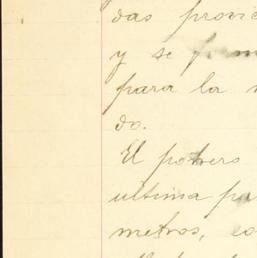 das provi
y se form
para la
do.
El potrero
ultima pa
metros, co